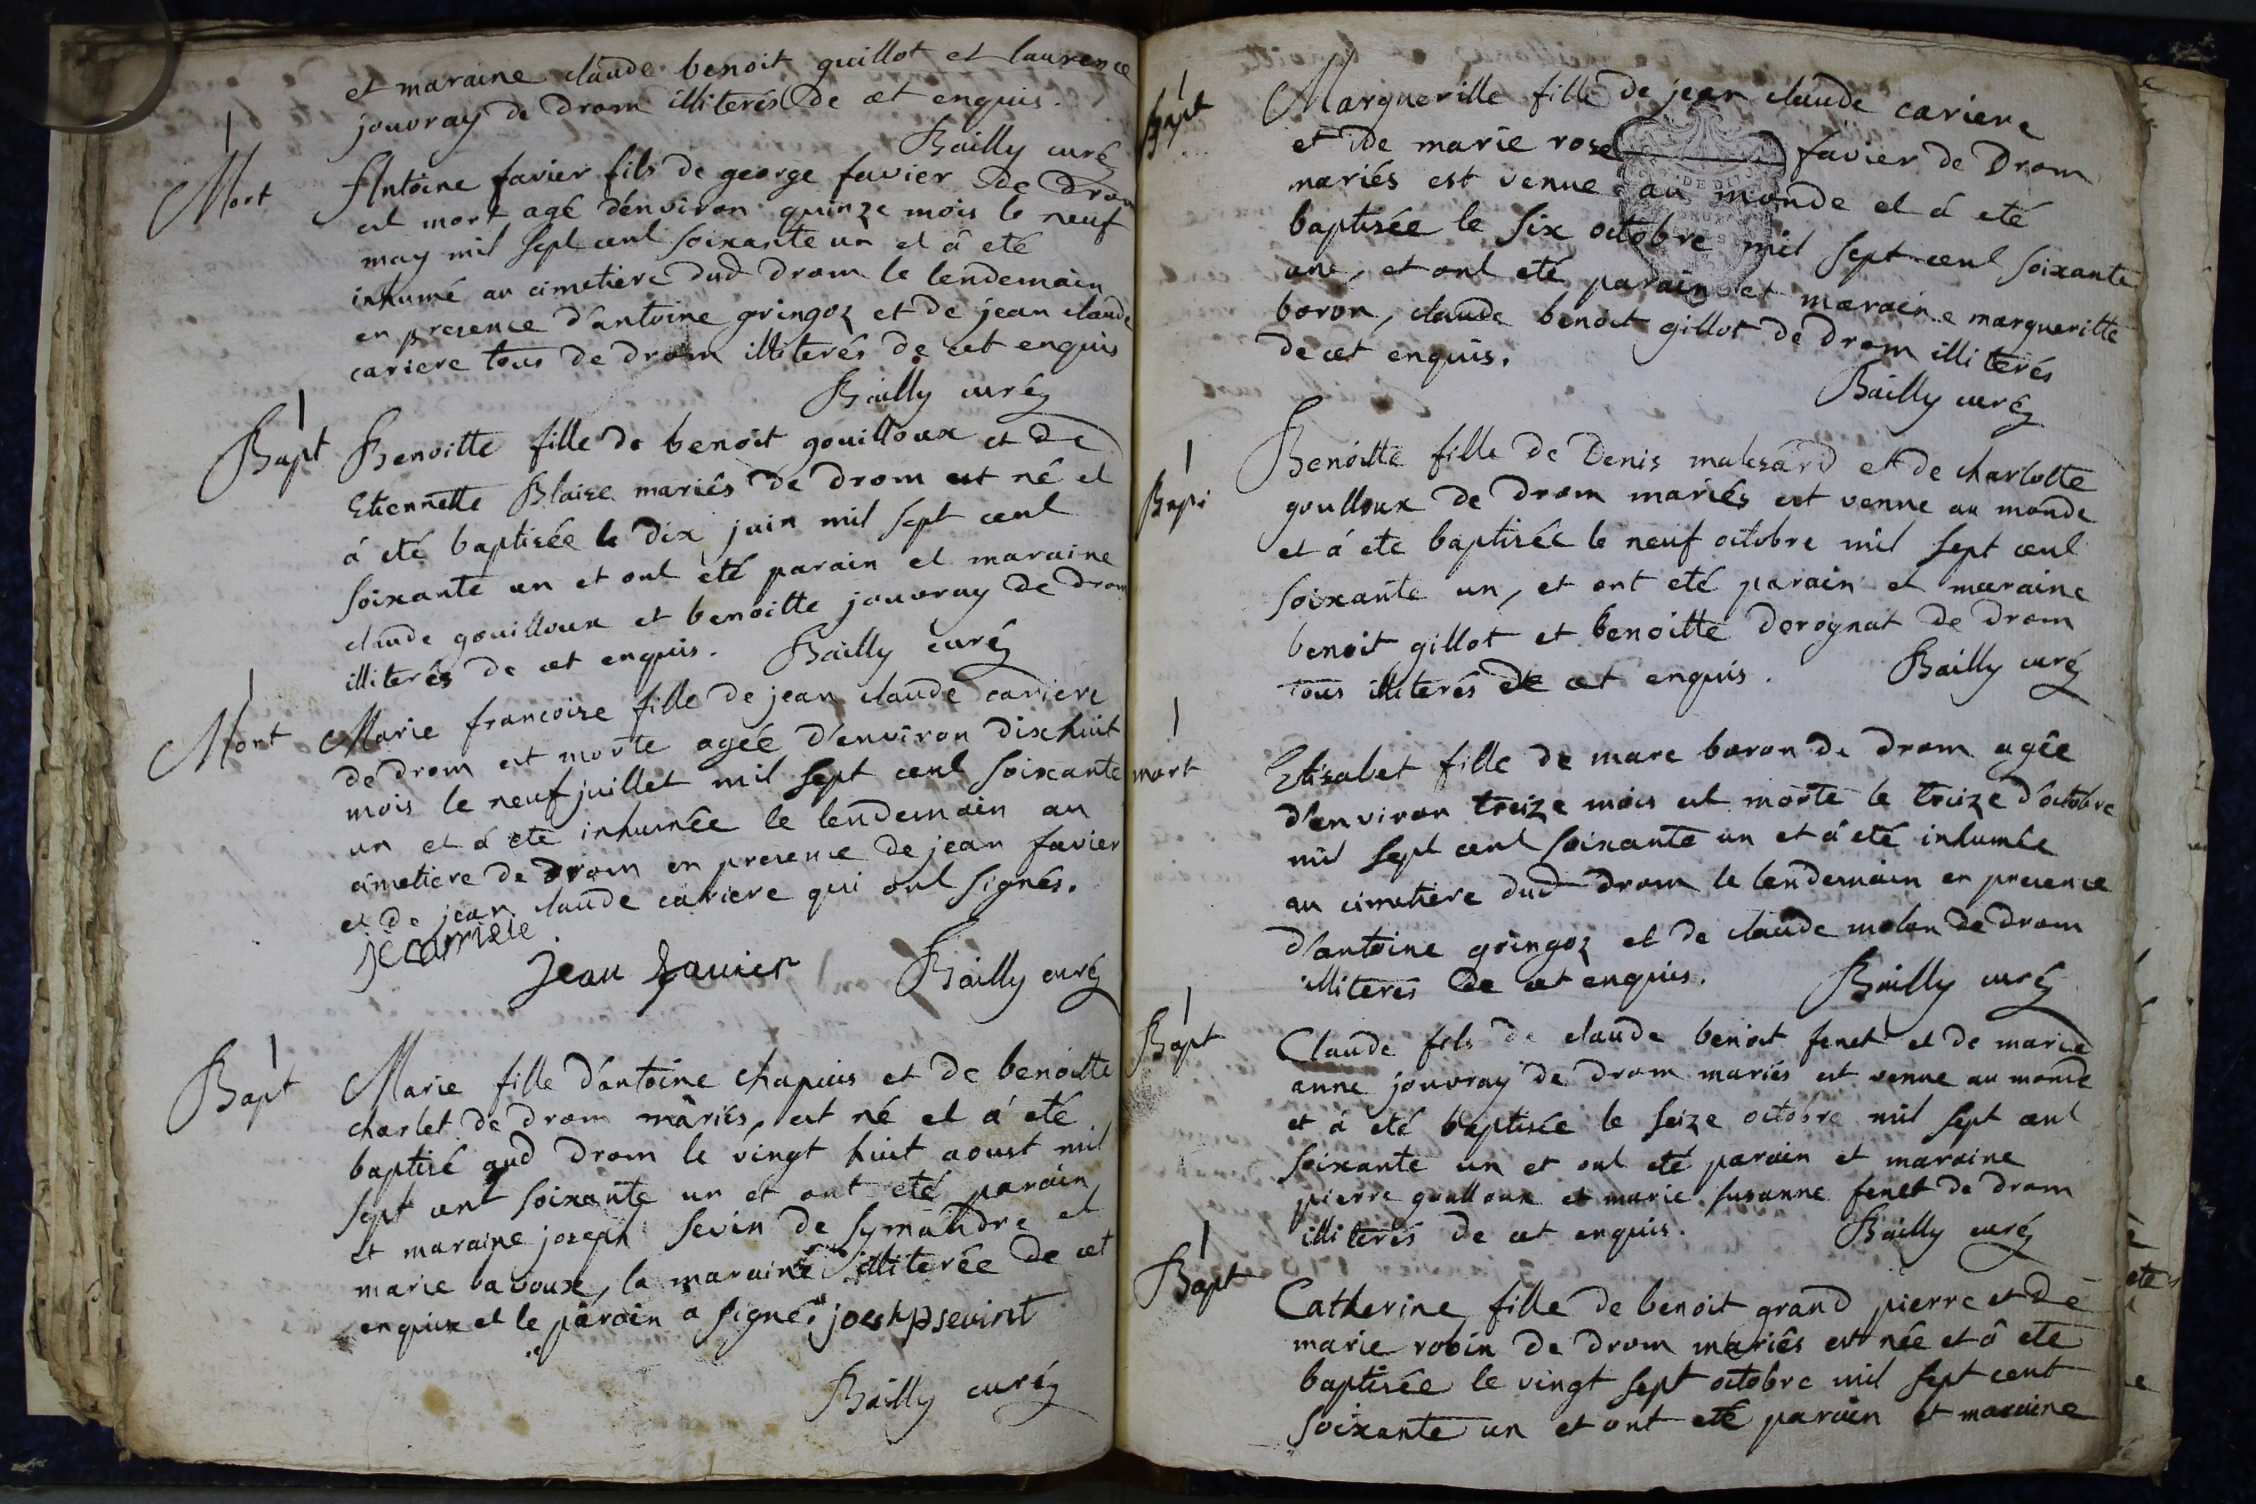 et maraine claude benoit guillot et laurence
jouvray de drom illiterés de cet enquis.
Bailly curé
Mort
Antoine favier fils de george favier de Drom
est mort agé d'environ quinze mois le neuf
may mil sept cent soixante un et â eté
inhumé au cimetiere dud drom le lendemain
en presence d'antoine gringoz et de jean claude
cariere tous de drom illiterés de cet enquis
Bailly curé
Bapt
Benoitte fille de benoit gouilloux et de
Etiennette Blaise mariés de drom est né et
á eté baptisée le dix juin mil sept cent
soixante un et ont eté parain et maraine
claude gouilloux et benoitte jouvray de drom
illiterés de cet enquis. Bailly curé
Mort
Marie francoise fille de jean claude cariere
de drom est morte agée d'environ dixhuit
mois le neuf juillet mil sept cent soixante
un et á ete inhumée le lendemain au
cimetiere de drom en presence de jean favier
et de jean claude cariere qui ont signés.
jccarriere
jean favier Bailly curé
Bapt
Marie fille d'antoine chapuis et de benoitte
charlet de drom mâriés, est né et á eté
baptisé aud drom le vingt huit aoust mil
sept cent soixante un et ont eté parain
et maraine joseph sevin de symandre et
marie vavoux, la maraine illiterée de cet
enquise et le parain a signé. joeshpsevint
Bailly curé
Bapt
Marguerille fille de jean claude cariere
et de marie rose favier de Drom
mariés est venue au monde et á eté
baptisée le six octobre mil sept cent soixante
une, et ont eté parain et maraine margueritte
boron, claude benoit gillot de drom illiterés
de cet enquis.
Bailly curé
Bapt
Benoitte fille de Denis malezard et de charlotte
goulloux de drom mariés est venue au monde
et á ete baptisée le neuf octobre mil sept cent
soixante un, et ont eté parain et maraine
benoit gillot et benoitte derognat de drom
tous illiterés de cet enquis. Bailly curé
mort
Elisabet fille de marc boron de drom agée
d'environ treize mois est morte le treize d'octobre
mil sept cent soixante un et á eté inhumée
au cimetiere dud drom le lendemain en presence
d'antoine gringoz et de claude molon de drom
illiteres de cet enquis. Bailly curé
Bapt
Claude fils de claude benoit fenet et de marie
anne jouvray de drom mariés est venue au monde
et á eté baptisée le seize octobre mil sept cent
soixante un et ont eté parain et maraine
pierre goulloux et marie susanne fenet de drom
illiterés de cet enquis. Bailly curé
Bapt
Catherine fille de benoit grand pierre et de
marie robin de drom mariés est née et â ete
baptisée le vingt sept octobre mil sept cent
soixante un et ont eté parain et maraine